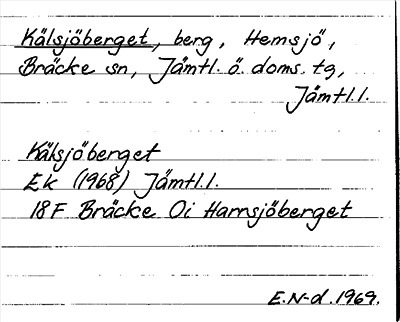 Kälsjöberget, berg, Hemsjö,
Bräcke sn, Jämtl. ö. doms. tg,
Jämtl.l.
Kälsjöberget
Ek (1968) Jämtl.l.
18F Bräcke 0i Harrsjöberget
E.N-d. 1969.